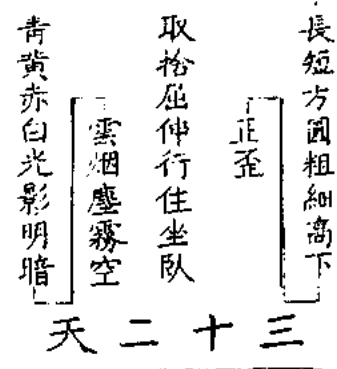 長短方圓粗細高下
正歪
取捨屈伸行住坐臥
雲烟塵霧空
青黃赤白光影明暗
三十二天